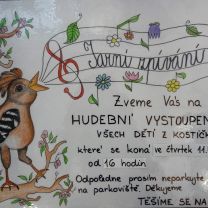 Jarní zpívání
Zveme Vás na
HUDEBNÍ VYSTOUPEN
VŠECH DĚTÍ Z KOSTIČK
které se koná ve čtvrtek 11.
od 16 hodin
Odpoledne prosím neparkujte
na parkoviště. Děkujeme
TĚŠÍME SE NA